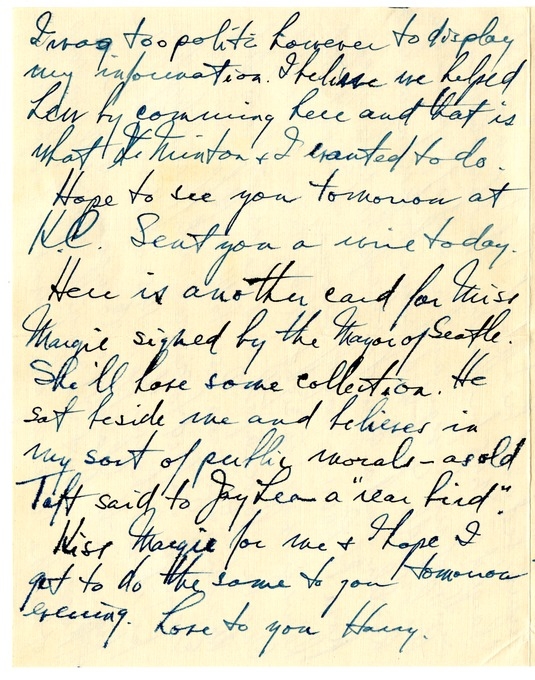 I was too polite however to display
my information. I believe we helped
him by comming here and that is
what Minton & I wanted to do.
Hope to see you tomorrow at
K.C. Sent you a wire today.
Here is another card for Miss
Margie signed by the Mayor of Seatle.
She'll have some collection. He
sat beside me and believes in
my sort of public morals - as old
Taft said to Jay Lee a "rear bird".
Kiss Margie for me & I hope I
get to do the same to you tomorrow
evening. Love to you Harry.